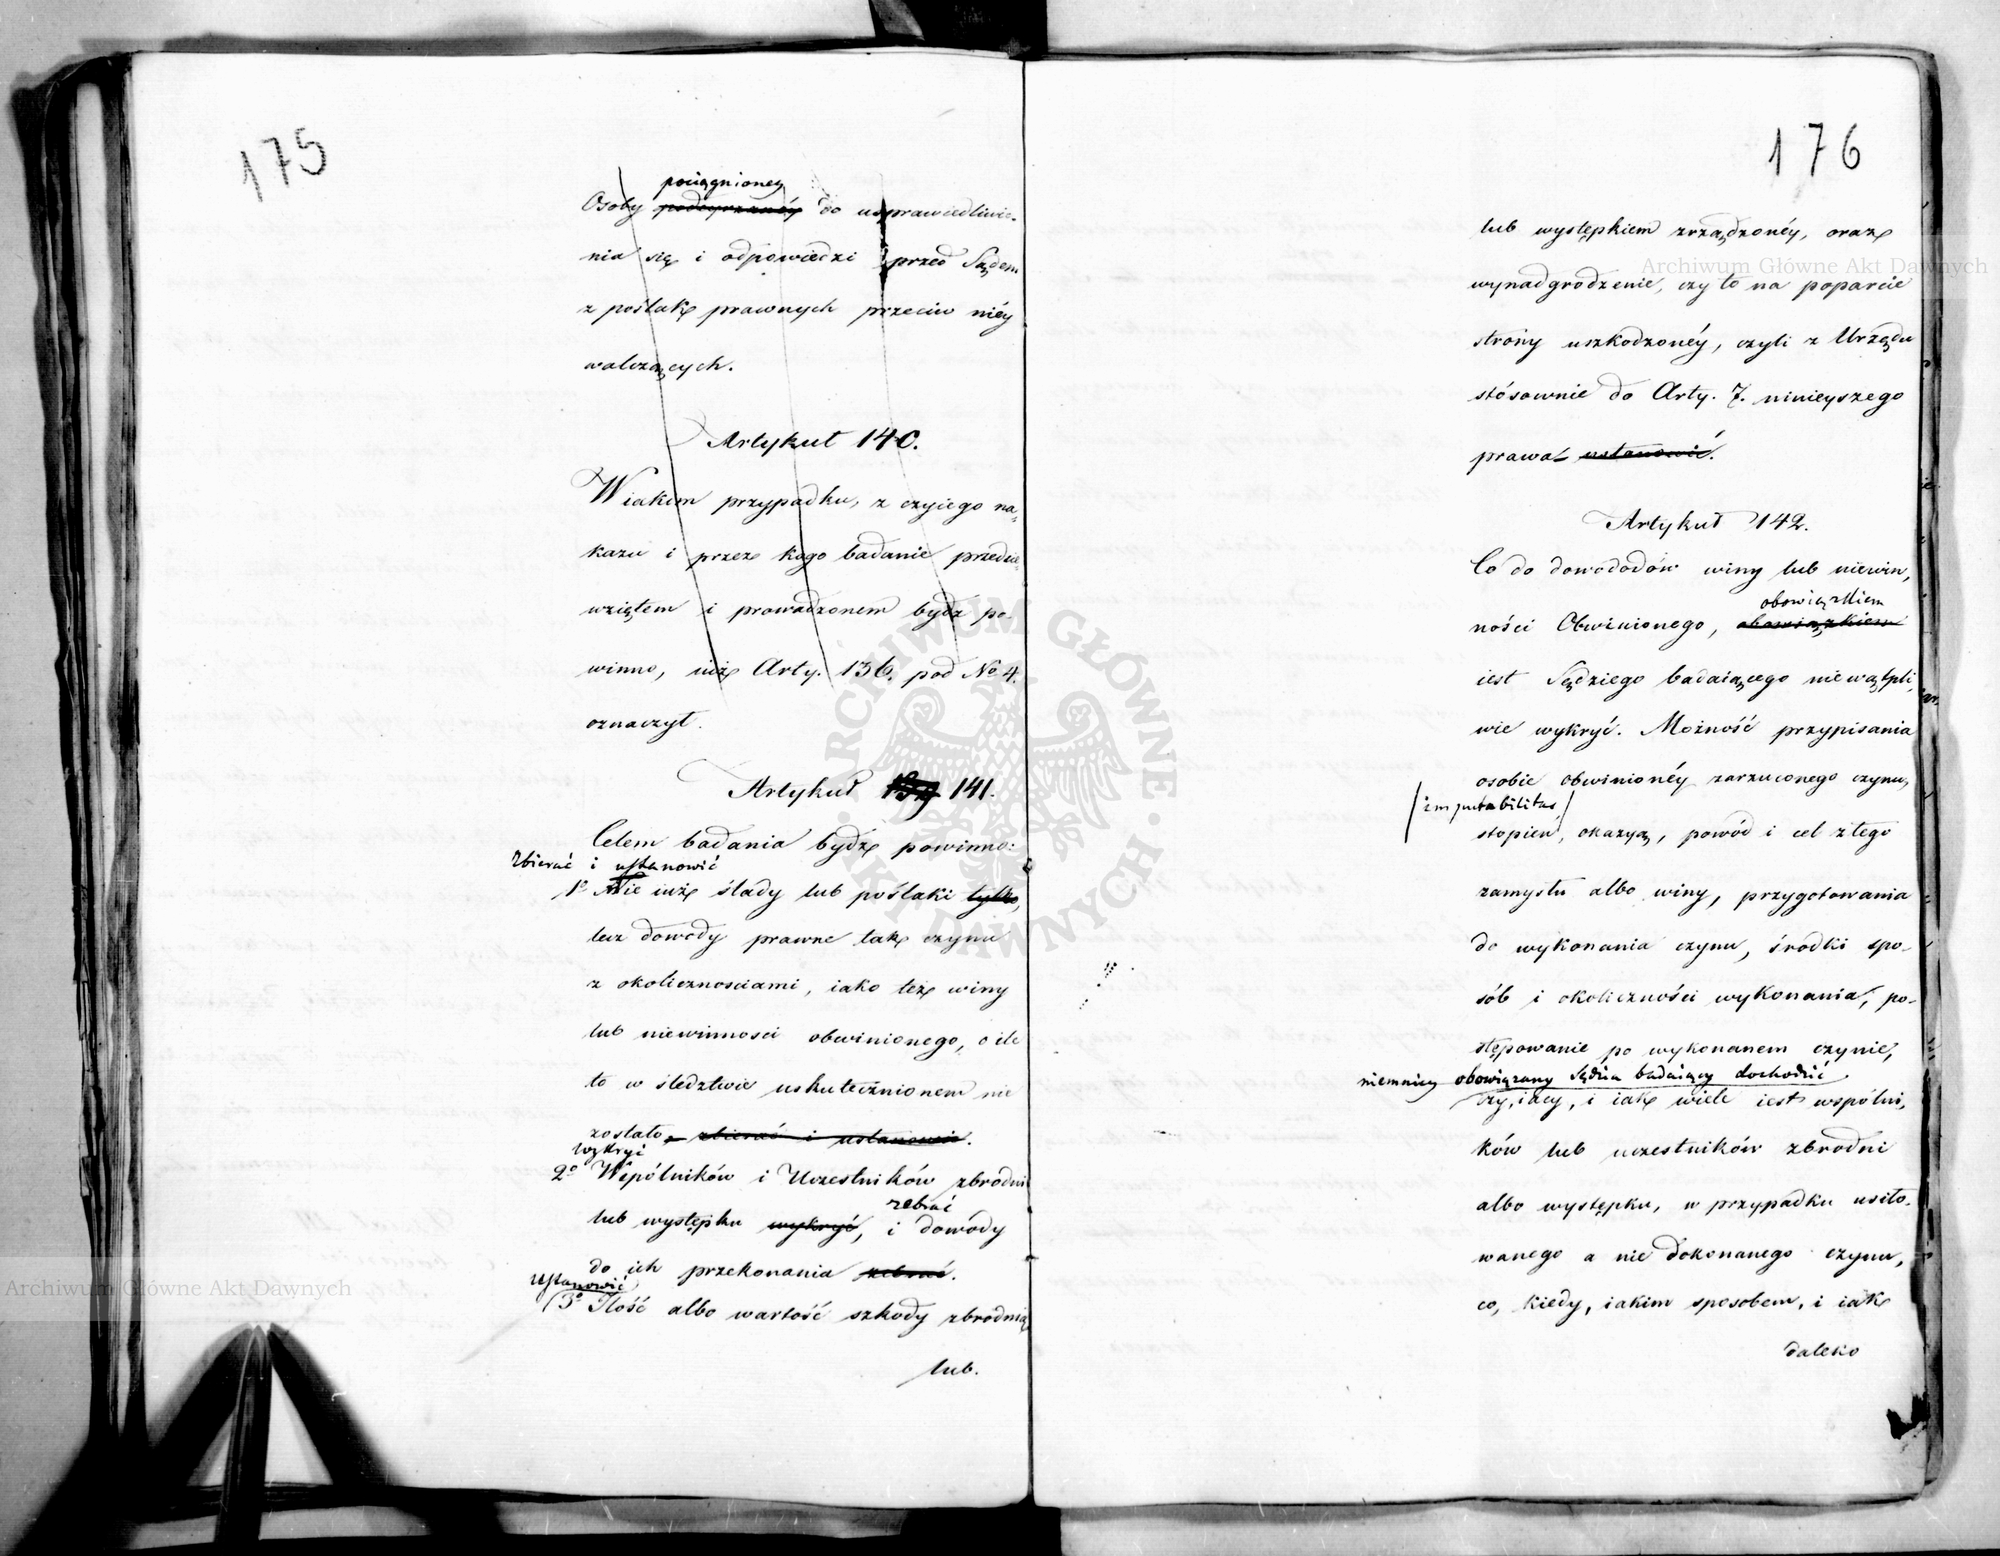 175
pociągnioney
Osoby podeyrzanéy do usprawiedliwie-
nia się i odpowiedzi przed Sądem
z poślak prawnych przeciw niéy
walczących.
Artykuł 140.
W iakim przypadku, z czyiego na-
kazu i przez kogo badanie przedsie-
wziętem i prowadzonem bydź po-
winno, iuż Arty. 136. pod No 4.
oznaczył.
Artykuł 139 141.
Celem badania bydź powinno:
zbierać i ustanowić
1o Nie iuż ślady lub poślaki tylko,
lecz dowody prawne tak czynu
z okolicznosciami, iako też winy
lub niewinnosci obwinionego, o ile
to w śledztwie uskutecznionem nie
zostało, zbierać i ustanowić.
wykryć
2o Wspólników i Uczestników zbrodni
zebrać
lub występku wykryć, i dowódy
do ich przekonania zebrać.
ustanowić
3o Ilość albo wartość szkody zbrodnią
lub.
176
lub występkiem zrządzonéy, oraz
wynadgrodzenie, czy to na poparcie
strony uszkodzonéy, czyli z Urzędu
stósownie do Arty. 7. ninieyszego
prawa ustanowić.
Artykuł 142.
Co do dowododów winy lub niewin,
obowiązkiem
ności Obwinionego, obowiązkiem
iest Sędziego badaiącego niewątpli,
wie wykryć. Możność przypisania
osobie obwinionéy zarzuconego czynu,
/imputabilitas/
stopień, okazyą, powód i cel złego
zamysłu albo winy, przygotowania
do wykonania czynu, środki spo-
sób i okoliczności wykonania, po-
stępowanie po wykonanem czynie,
niemniey obowiązany Sędzia badaiący dochodzić
czy, iacy, i iak wiele iest wspólni,
ków lub uczestników zbrodni
albo występku, w przypadku usiło-
wanego a nie dokonanego czynu,
co, kiedy, iakim sposobem, i iak
daleko
Archiwum Główne Akt Dawnych
Archiwum Główne Akt Dawnych
ARCHIWUM GŁÓWNE AKT DAWNYCH